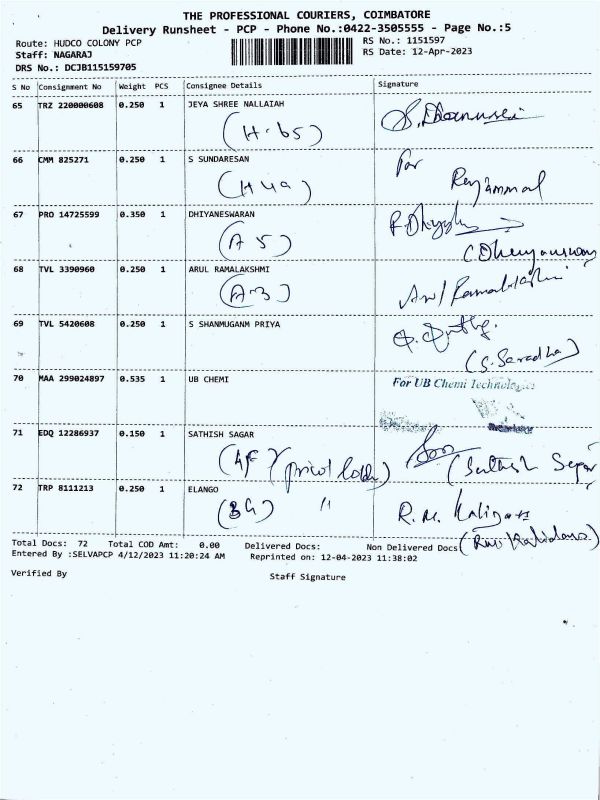 THE PROFESSIONAL COURIERS, COIMBATORE
Delivery Runsheet - PCP - Phone No.:0422-3505555 - Page No.:5
Route: HUDCO COLONY PCP
Staff: NAGARAJ
DRS No.: DCJB115159705
RS No.: 1151597
RS Date: 12-Apr-2023
S No Consignment No Weight PCS Consignee Details Signature
65 TRZ 220000608 0.250 1 JEYA SHREE NALLAIAH
(H-65)
66 CMM 825271 0.250 1 S SUNDARESAN
(H49) For Rajammal
67 PRO 14725599 0.350 1 DHIYANESWARAN
(A 5)
68 TVL 3390960 0.250 1 ARUL RAMALAKSHMI
(A-3) Arul Ramalakshmi
69 TVL 5420608 0.250 1 S SHANMUGANM PRIYA
(S. Saradha)
70 MAA 299024897 0.535 1 UB CHEMI
For UB Chemi Technologies
71 EDQ 12286937 0.150 1 SATHISH SAGAR
(4F) (Sathish Sagar)
72 TRP 8111213 0.250 1 ELANGO
(BG) 11
Total Docs: 72 Total COD Amt: 0.00 Delivered Docs: Non Delivered Docs
Entered By :SELVAPCP 4/12/2023 11:20:24 AM Reprinted on: 12-04-2023 11:38:02
Verified By Staff Signature